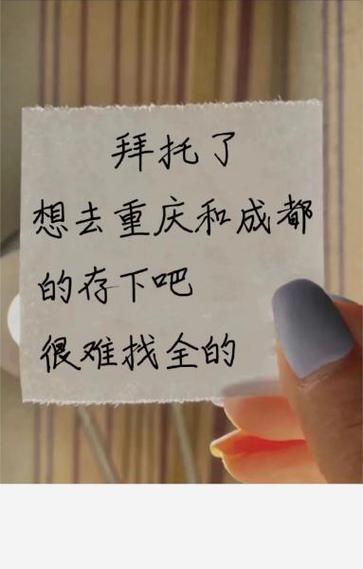 拜托了
想去重庆和成都
的存下吧
很难找全的